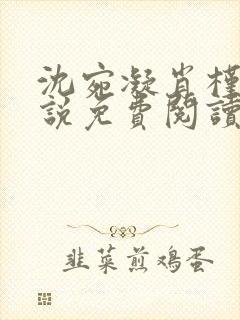 沈宛凝肖槿
說免費閱讀
韭菜煎鸡蛋